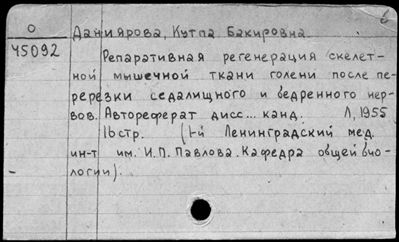 6
О Даниярова, Кутпа Бакировна
45092 Репаративная регенерация скелет-
ной мышечной ткани голени после пе-
ререзки седалищного и бедренного нер-
вов. Автореферат дисс... канд. Л, 1955
16 стр. (1-й Ленинградский мед.
ин-т им. И.П. Павлова. Кафедра общей био-
логии).